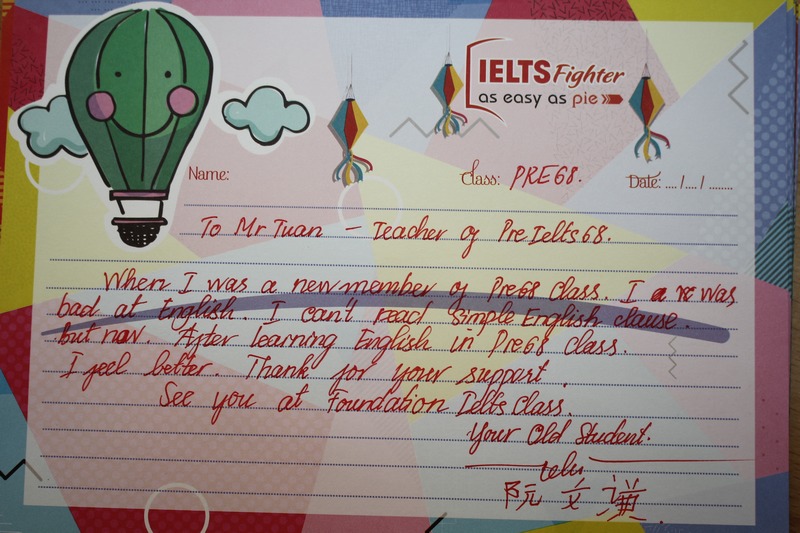 IELTS Fighter
as easy as pie
Name:
Class: PRE68.
Date: ..../..../........
To Mr Tuan – Teacher of PreIelts68.
When I was a new member of Pre68 Class. I was
bad at English. I can't read simple English clause.
but now. After learning English in Pre68 class.
I feel better. Thank for your support.
See you at Foundation Ielts Class.
Your Old Student.
阮文